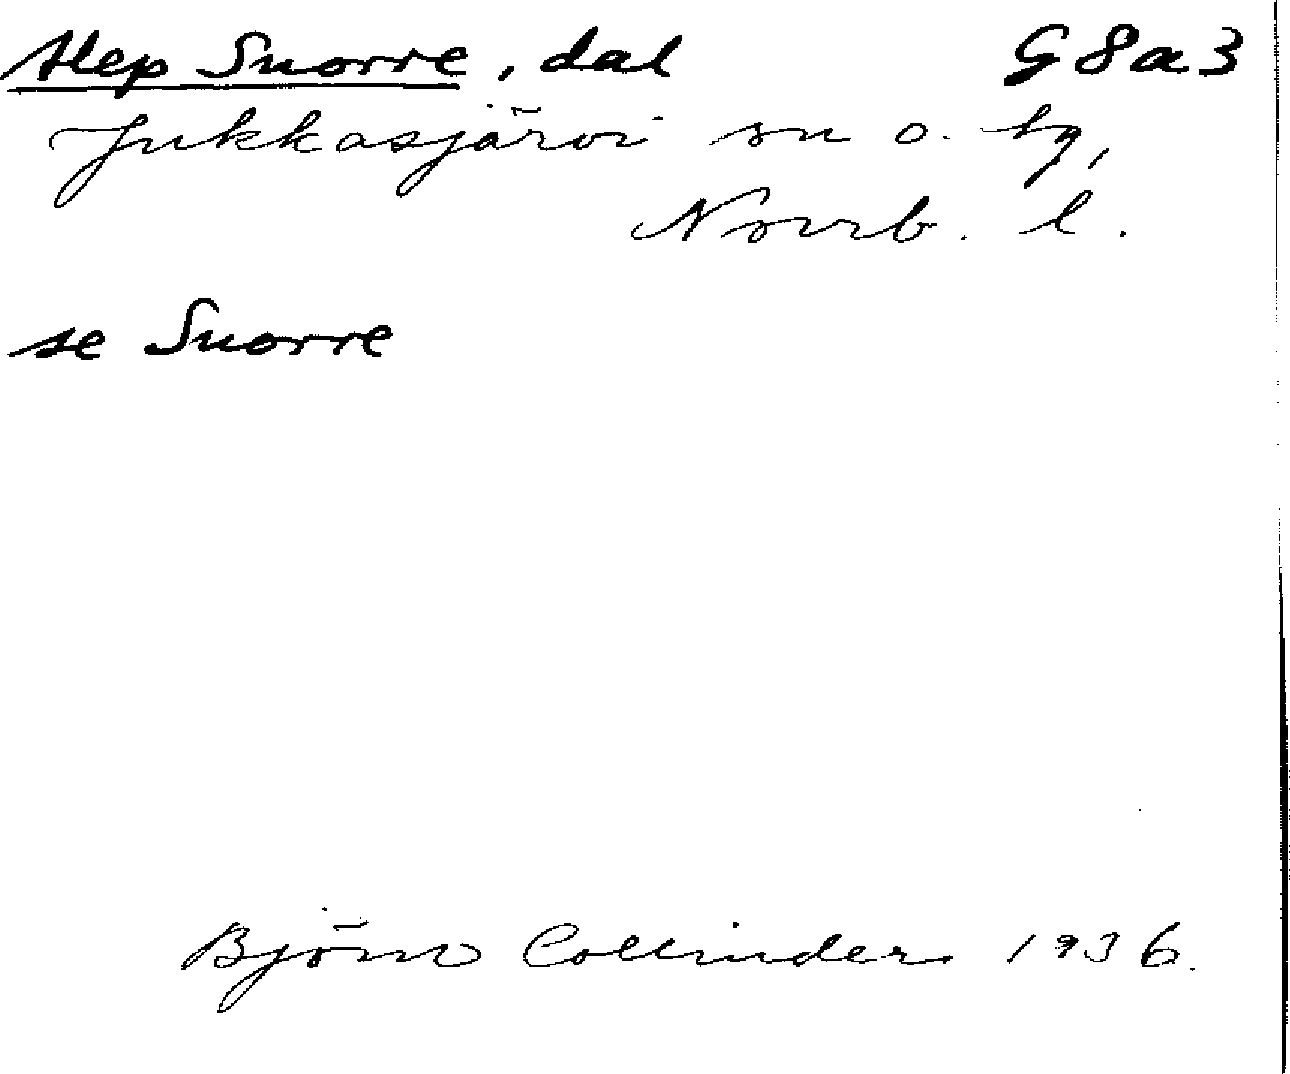 Alep Snorre, dal G8a3
Jukkasjärvi sn o. tg,
Norrb. l.
se Snorre
Björn Collinder 1936.